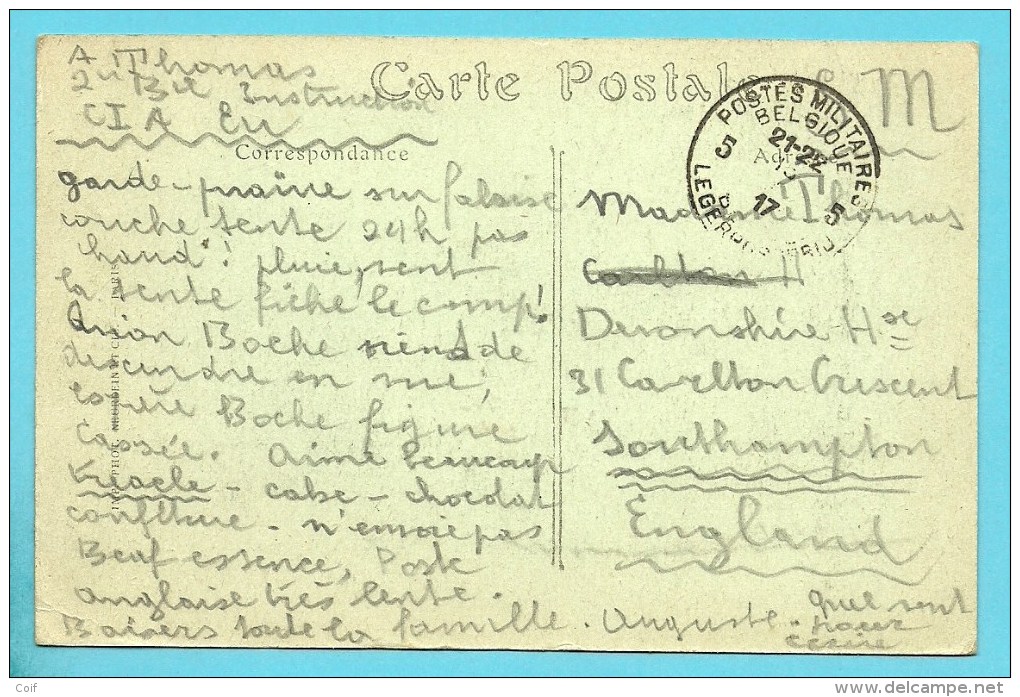 A Thomas
2n Bie Instruction
CIA Eu
Carte Postale
S. M
POSTES MILITAIRES
BELGIQUE
21-22
17
5 5
LEGERPOSTERIJ
Correspondance
garde - prairie sur falaise
couche tente 24h pas
chaud! pluie, vent
la tente fiche le camp!
Avion Boche vient de
descendre en mer,
espère Boche figure
cassée. Aime beaucoup
treacle - cake - chocolat
confiture - n'envoie pas
Beaf essence, Poste
anglaise très lente.
Baisers toute la famille. Auguste.
quel vent
pour
écrire
Madame Thomas
Carlton H
Devonshire Hse
31 Carlton Crescent
Southampton
England
PARIS
Coif
www.delcampe.net